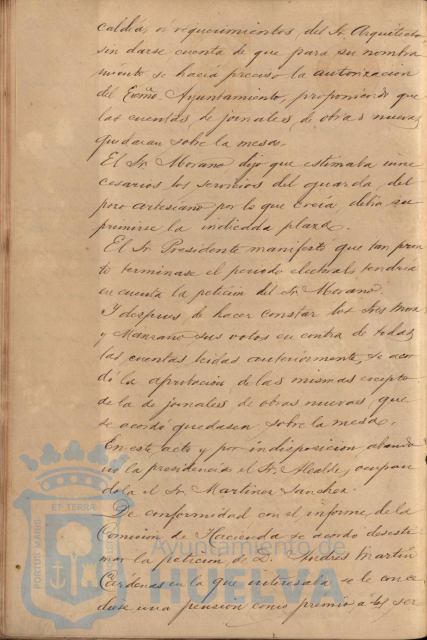 caldia, á requerimientos, del Sr. Arquitecto
sin darse cuenta de que para su nombra
miento se hacia preciso la autorizacion
del Excmo Ayuntamiento, proponiendo que
las cuentas de jornales, de obras nuevas
quedaran sobre la mesa.
El Sr. Morano dijo que estimaba inne
cesarios los servicios del guarda, del
pozo artesiano por lo que creia debia su
primirse la indicada plaza.
El Sr. Presidente manifestó que tan pron
to terminase el periodo electoral tendria
en cuenta la peticion del Sr. Morano.
Y despues de hacer constar los Sres
y Manzano sus votos en contra de todas
las cuentas leidas anteriormente, se acor
dó la aprobacion de las mismas excepto
de la de jornales de obras nuevas, que
se acordó quedasen sobre la mesa.
En este acto y por indisposicion, abando
nó la presidencia el Sr. Alcalde, ocupan
dola el Sr. Martinez Sanchez.
De conformidad con el informe de la
Comision de Hacienda se acordó desesti
mar la peticion de D. Andrés Martin
Cárdenas en la que interesaba se le conce
diese una pension como premio á los ser
PORTUS MARIS ET TERRAE
Ayuntamiento de
HUELVA